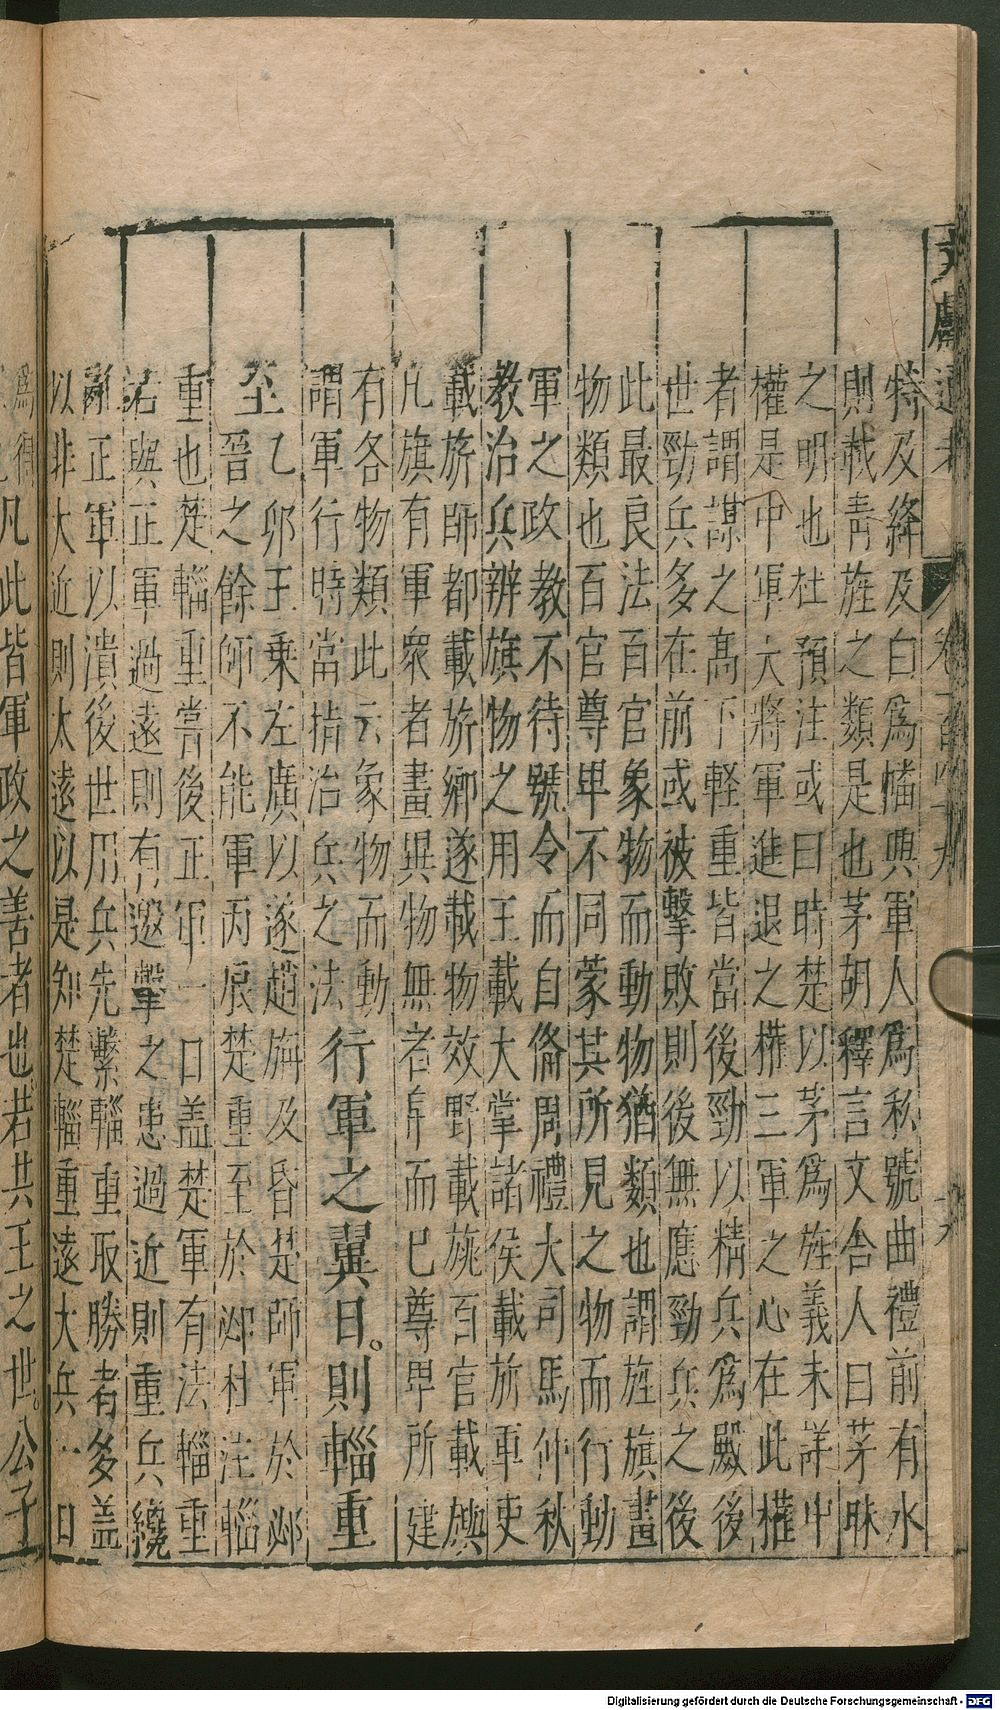 文獻通考 卷一百四十九
特及絳及白爲幡與軍人爲私號曲禮前有水
則載青旌之類是也茅胡釋言文舍人曰茅昧
之明也杜預注或曰時楚以茅爲旌義未詳中
權是中軍大將軍進退之權三軍之心在此權
者謂謀之高下輕重皆當後勁以精兵爲殿後
世勁兵多在前或被擊敗則後無應勁兵之後
此最良法百官象物而動物猶類也謂旌旗畫
物類也百官尊卑不同蒙其所見之物而行動
軍之政教不待號令而自俻周禮大司馬仲秋
教治兵辨旗物之用王載大掌諸侯載旂軍吏
載旂師都載載旅鄉遂載物效野載旐百官載旟
凡旗有軍衆者畫異物無者帛而已尊卑所建
有各物類此云象物而動
謂軍行時當指治兵之法
行軍之翼日。則輜重
至
乙卯王乘左廣以逐趙旃及昏楚師軍於邲
晉之餘師不能軍丙辰楚重至於邲杜注輜
重也楚輜重嘗後正軍一日蓋楚軍有法輜重
若與正軍過遠則有邀擊之患過近則重兵纔
衂正軍以潰後世用兵先繫輜重取勝者多蓋
以非太近則太遠以是知楚輜重遠大兵一日
爲得
凡此皆軍政之善者也。若共王之世。公子
Digitalisierung gefördert durch die Deutsche Forschungsgemeinschaft - DFG